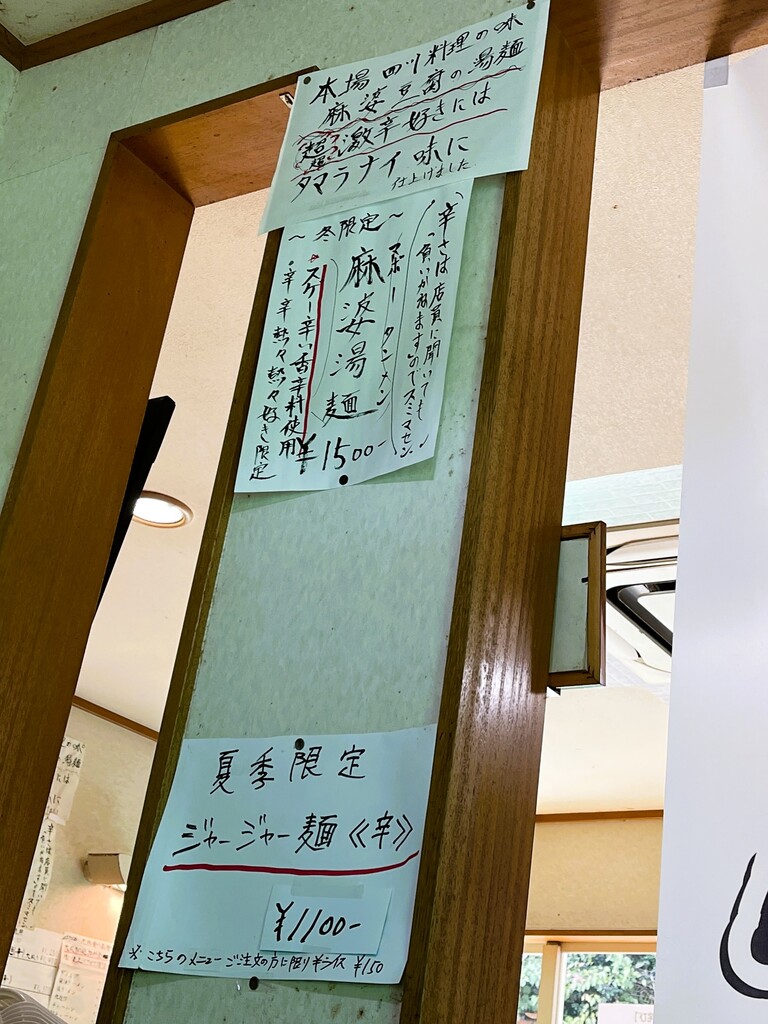 本場四川料理の味
麻婆豆腐の湯麺
激辛好きには
タマラナイ味に
仕上げました
〜冬限定〜
(辛さは店員に聞いても
「負いかねます」のでスミマセン。)
マーボータンメン
麻婆湯麺
スゲー辛い香辛料使用
・辛辛熱々熱々好き限定
¥1500-
夏季限定
ジャージャー麺《辛》
¥1100-
※こちらのメニューご注文の方に限り半ライス ¥150